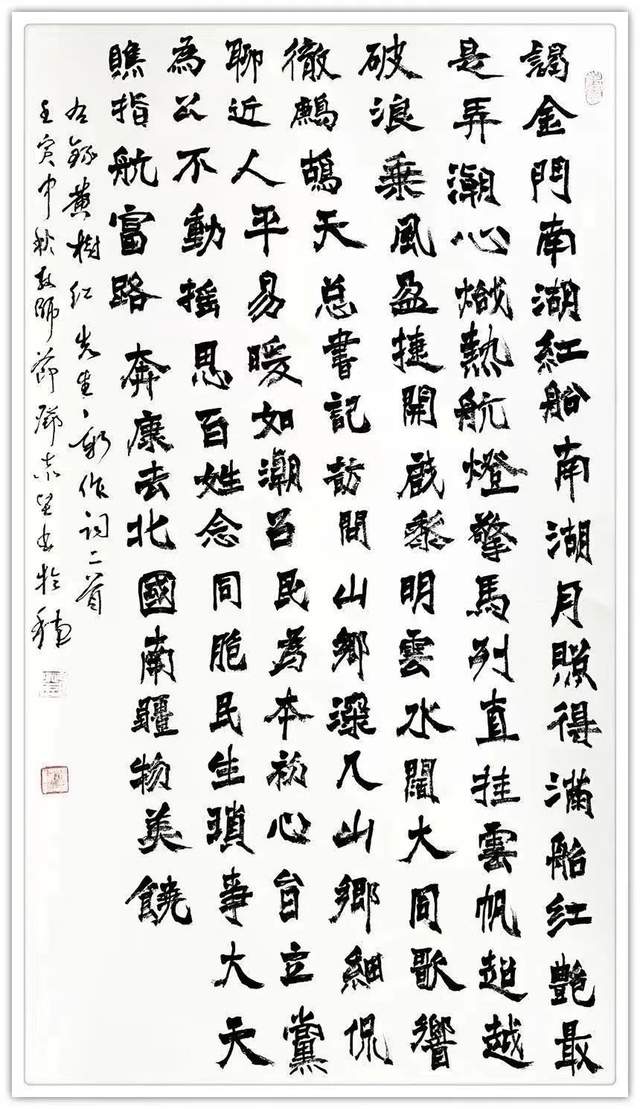 謁金門南湖紅船南湖月照得滿船紅艷最
是弄潮心熾熱航燈擎馬列直挂雲帆超越
破浪乘風盈捷開啟黎明雲水闊大同歌響
徹鷓鴣天总書記訪問山鄉深入山鄉細侃
聊近人平易暖如潮吕民為本初心自立黨
為公不動摇思百姓念同胞民生瑣事大天
瞧指航富路奔康去北國南疆物美饒
右錄黄樹红先生新作词二首
壬寅中秋教師節书於穗